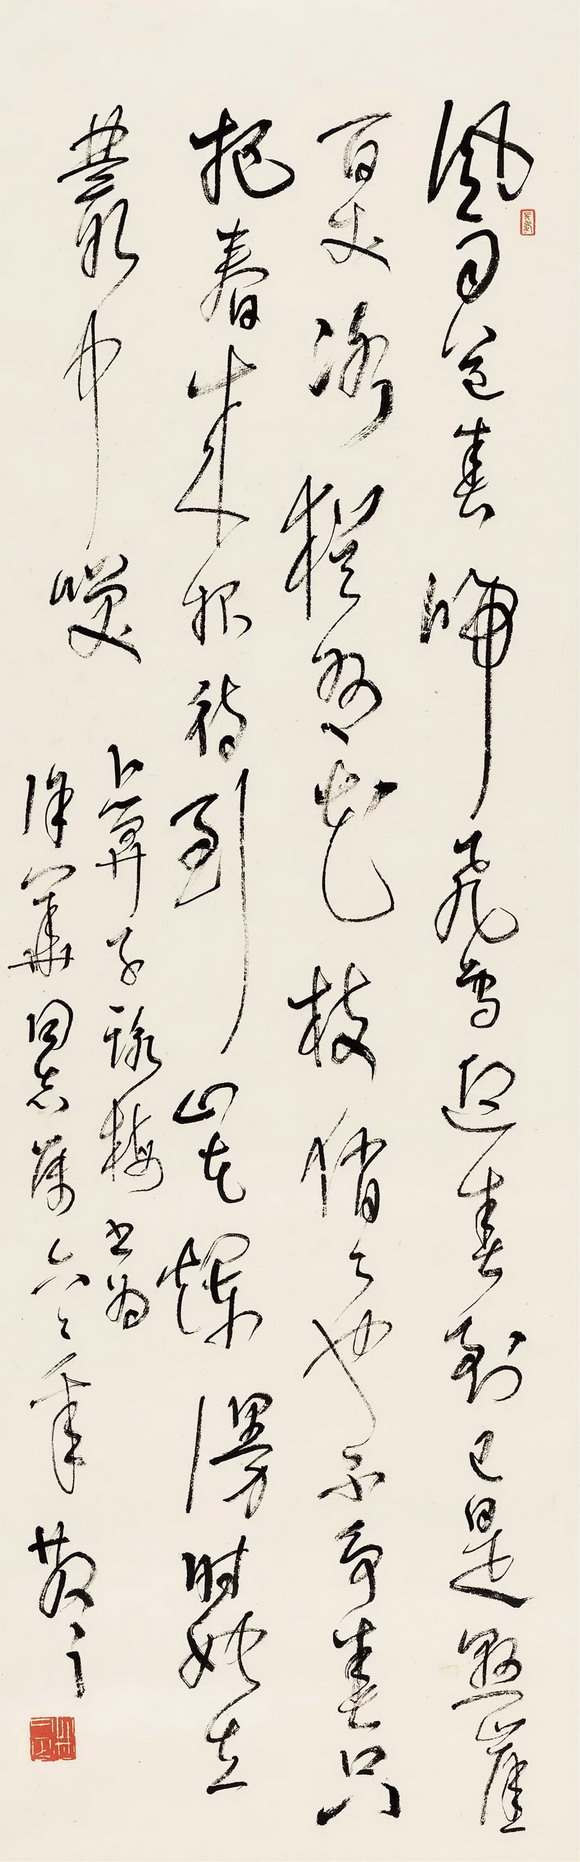 風雨送春歸飛雪迎春到已是懸崖
百丈冰猶有花枝俏俏也不争春只
把春來报待到山花爛漫时她在
叢中笑
卜算子詠梅書為
同志屬六六年散之